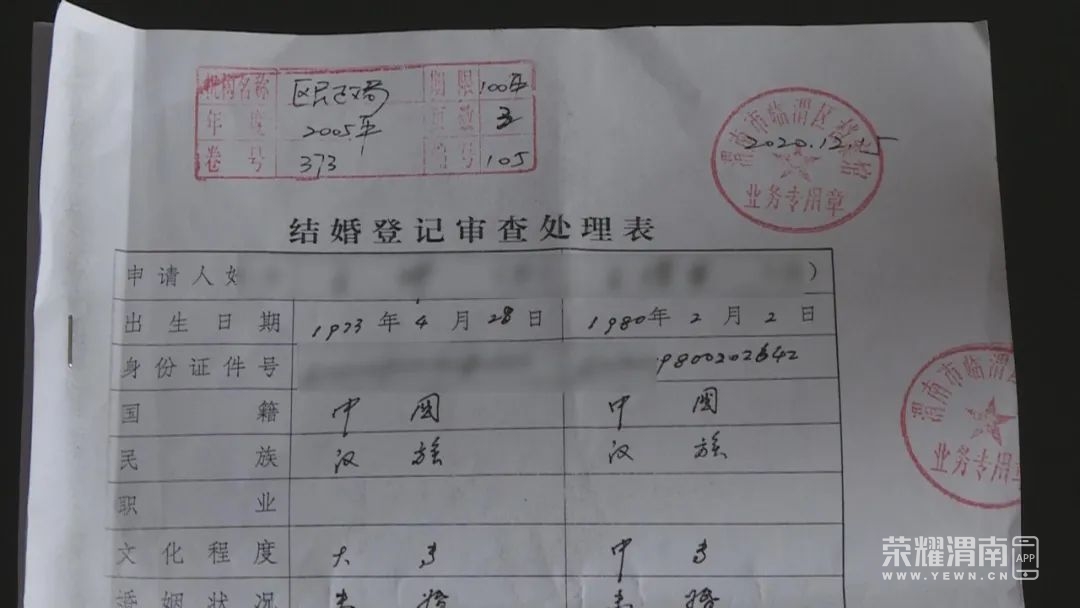 机构名称 区民政局 期限 100年
年度 2005年 页数 3
卷号 373 105
渭南市临渭区档案馆
2020.12.15
业务专用章
结婚登记审查处理表
申请人
出生日期 1973年4月28日 1980年2月2日
身份证件号 9800202642
国籍 中国 中国
渭南市临渭区
业务专用章
民族 汉族 汉族
职业
文化程度 大专 中专
婚姻状况 未婚 未婚
荣耀渭南 APP
WWW.YEWN.CN